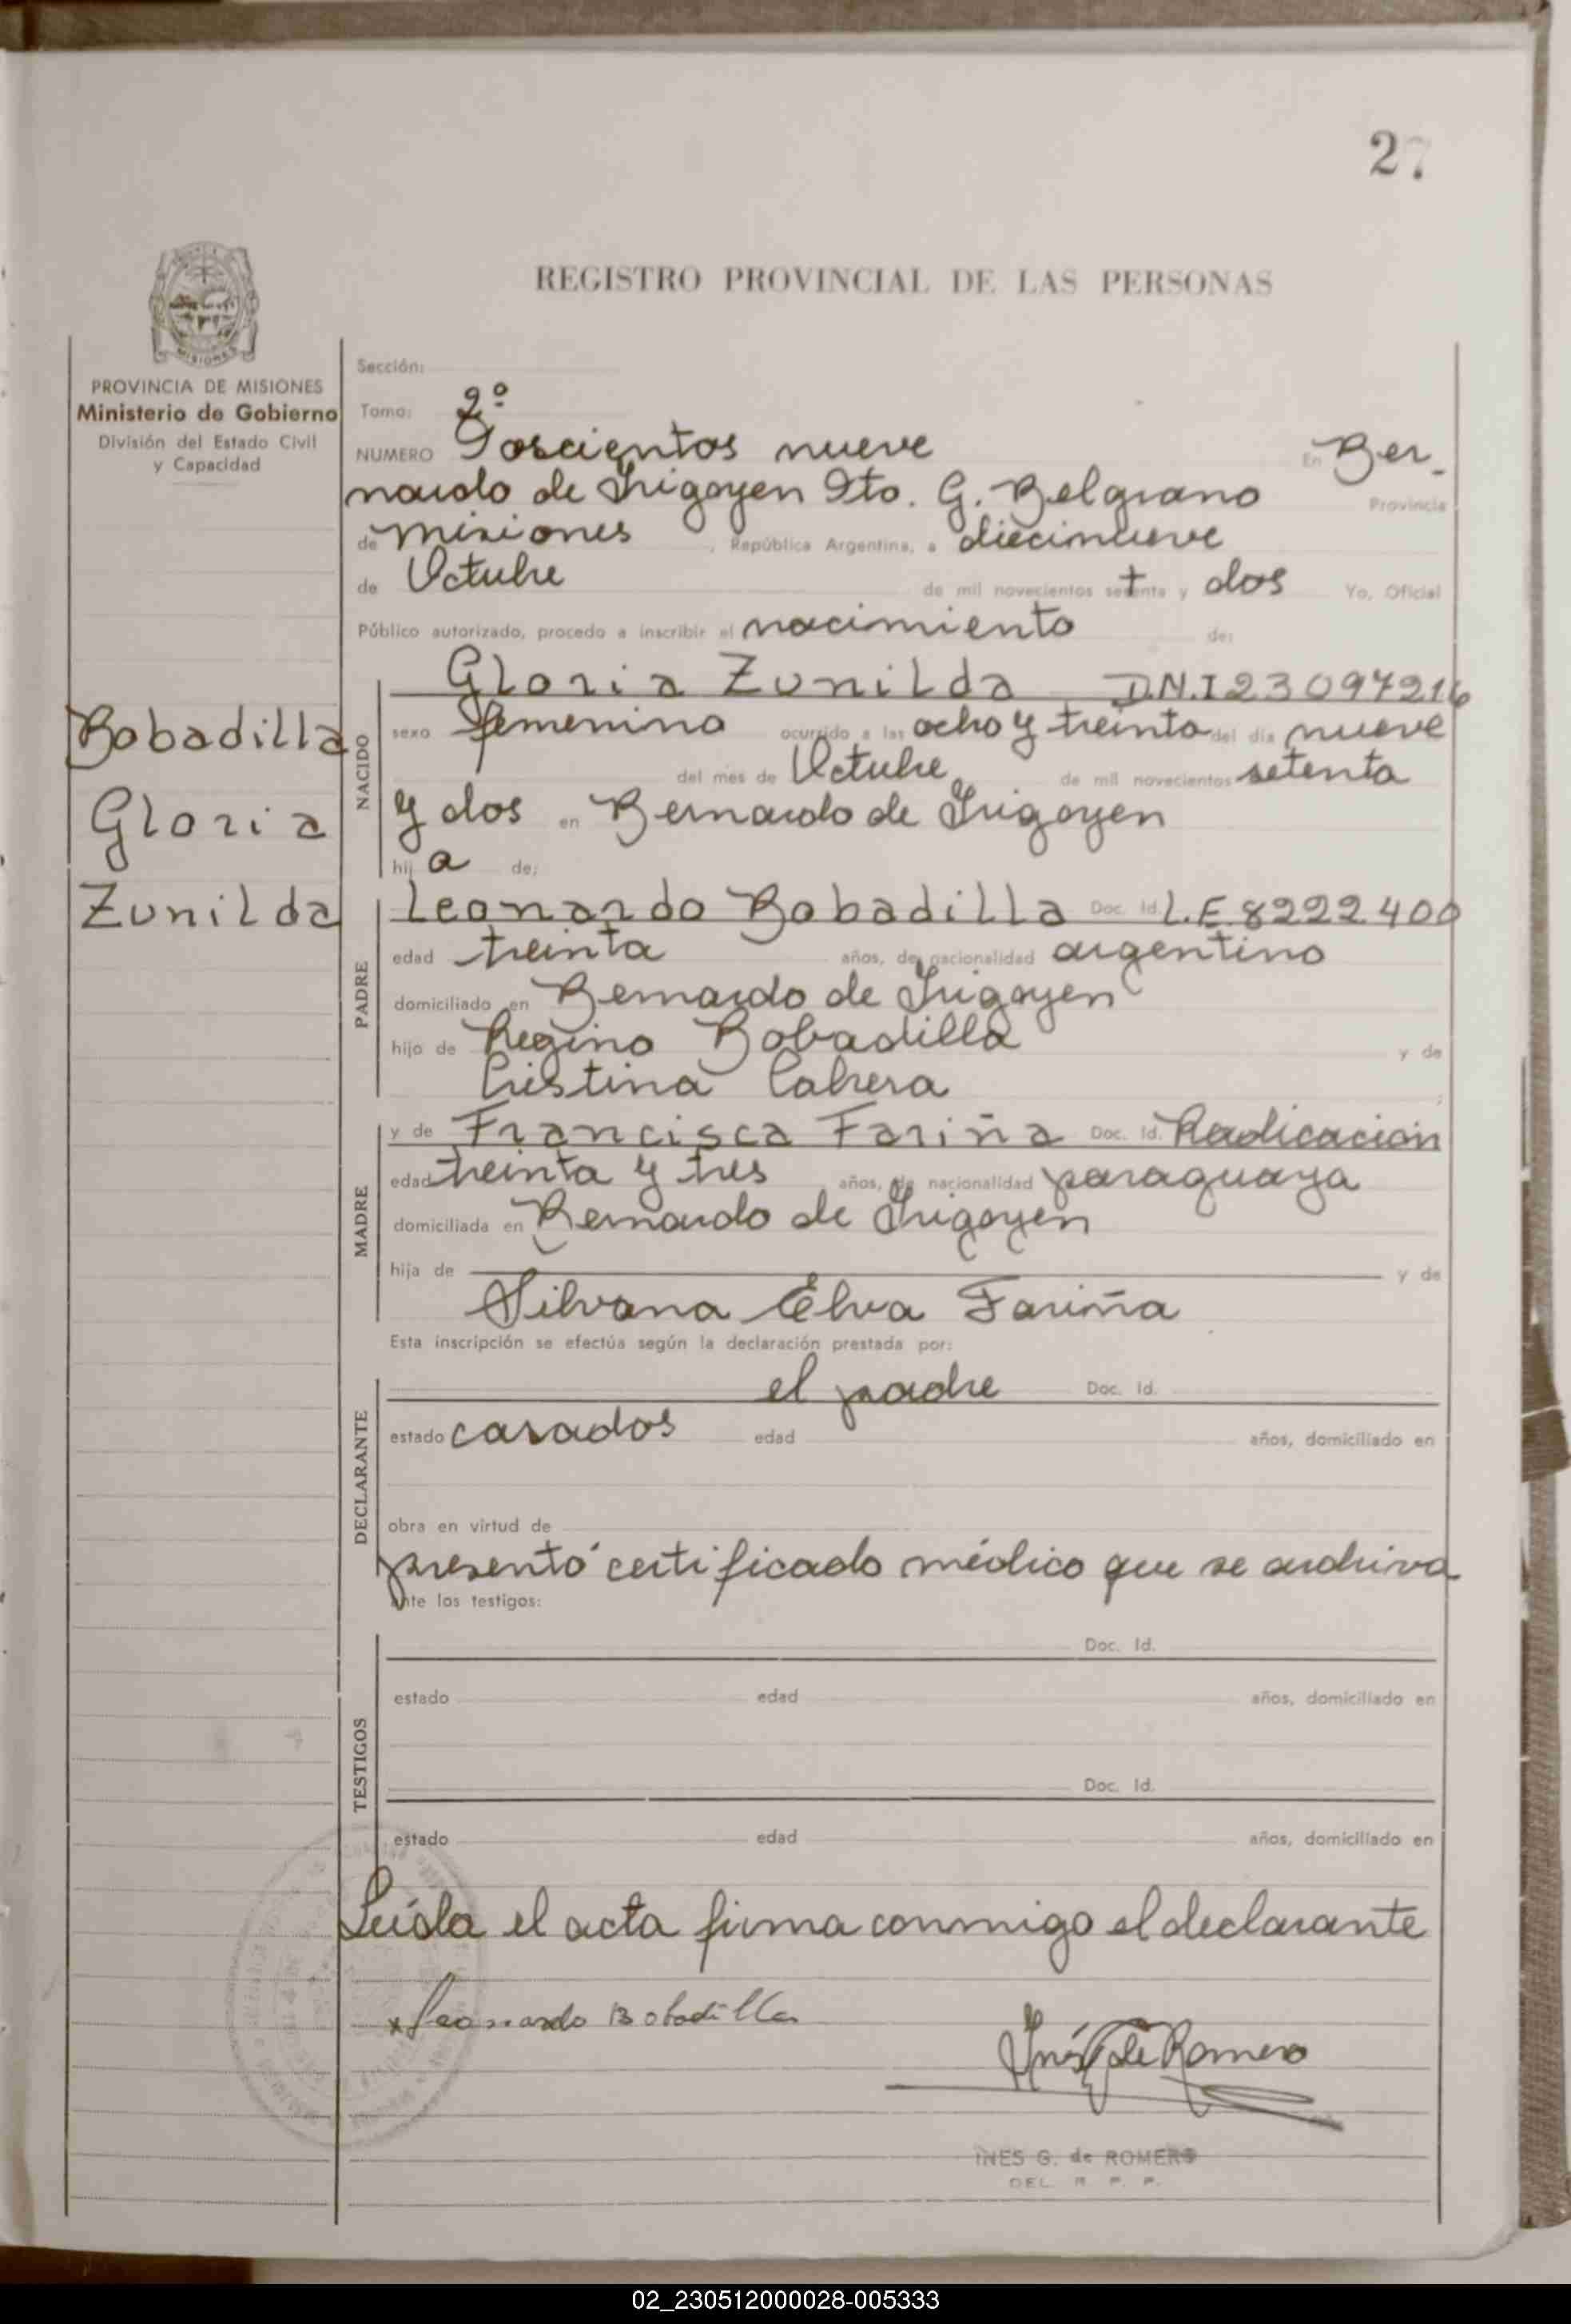 27
REGISTRO PROVINCIAL DE LAS PERSONAS
MISIONES
PROVINCIA DE MISIONES
Ministerio de Gobierno
División del Estado Civil
y Capacidad
Bobadilla
Gloria
Zunilda
Sección:
Tomo: 2º
NUMERO Doscientos nueve En Ber-
nardo de Irigoyen Dto. G. Belgrano Provincia
de Misiones, República Argentina, a diecinueve
de Octubre de mil novecientos setenta y dos Yo, Oficial
Público autorizado, procedo a inscribir el nacimiento de:
NACIDO
Gloria Zunilda D.N.I 23097216
sexo femenino ocurrido a las ocho y treinta del día nueve
del mes de Octubre de mil novecientos setenta
y dos en Bernardo de Irigoyen
hij a de:
PADRE
Leonardo Bobadilla Doc. Id. L.E. 8222400
edad treinta años, de nacionalidad argentino
domiciliado en Bernardo de Irigoyen
hijo de Regino Bobadilla y de
Cristina Cabrera
MADRE
y de Francisca Fariña Doc. Id. Radicación
edad treinta y tres años, de nacionalidad paraguaya
domiciliada en Bernardo de Irigoyen
hija de y de
Silvana Elva Fariña
Esta inscripción se efectúa según la declaración prestada por:
DECLARANTE
el padre Doc. Id.
estado casados edad años, domiciliado en
obra en virtud de
presentó certificado médico que se archiva
ante los testigos:
TESTIGOS
Doc. Id.
estado edad años, domiciliado en
Doc. Id.
estado edad años, domiciliado en
Leída el acta firma conmigo el declarante
x Leonardo Bobadilla
Inés G de Romero
INES G. de ROMERO
DEL. R. P. P.
02_230512000028-005333